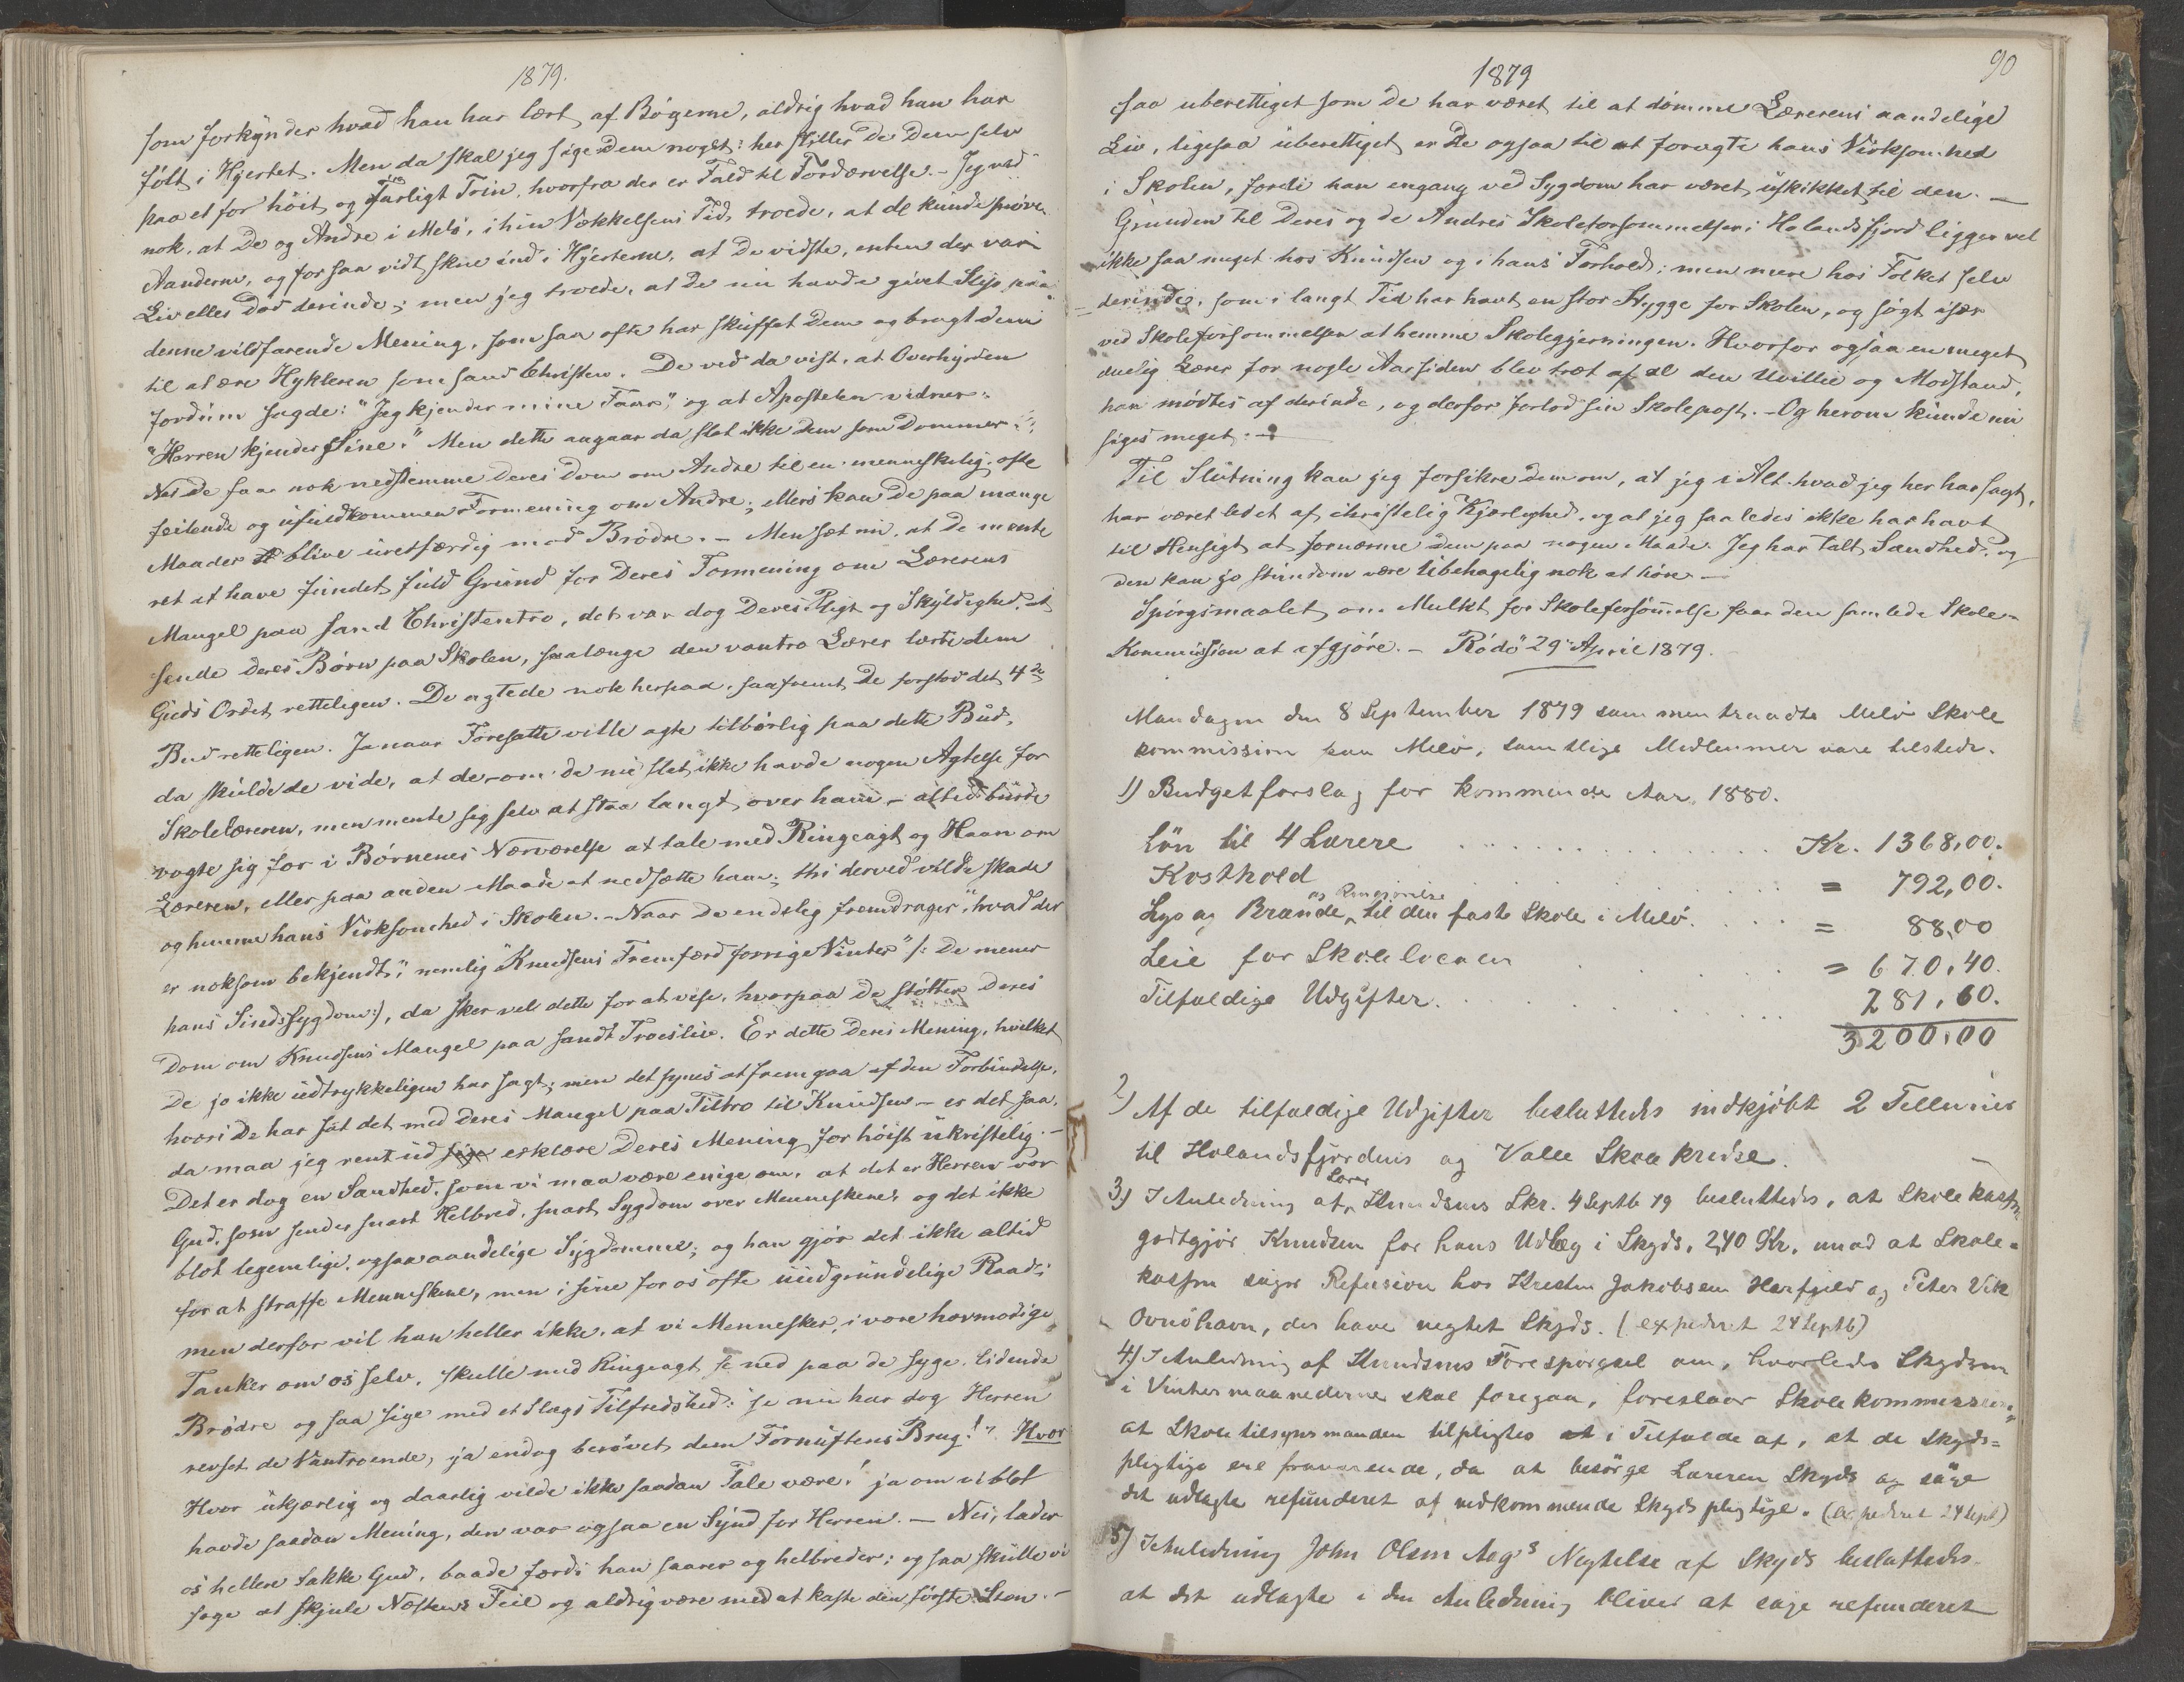 1879.
som forkynder hvad han har lært af Bögerne, aldrig hvad han har
fölt i Hjertet. Men da skal jeg sige Dem noget: her stiller De Dem selv
paa et for höit og farligt Trin, hvorfra der er Fald til Fordærvelse. – Jeg ved
nok, at De og Andre i Melö, i hin Vækkelsens Tid, troede, at de kunde pröve
Aanderne, og for saa vidt skue ind i Hjerterne, at De vidste, enten der var
Liv eller Död derinde; men jeg troede, at De nu havde givet Slip paa
denne vildfarende Mening, som saa ofte har skuffet Dem og bragt Dem
til at ære Hykleren som sand Christen. De ved da vist, at Overhyrden
fordum sagde: "Jeg kjender mine Faar", og at Apostelen vidner:
"Herren kjender Sine." Men dette angaar da slet ikke Dem som Dommer.
Nei De faar nok nedstemme Deres Dom om Andre til en menneskelig, ofte
feilende og ufuldkommen Formening om Andre; Ellers kan De paa mange
Maader blive uretfærdig mod Brödre. – Men sæt nu, at De mente
ret at have fundet fuld Grund for Deres Formening om Lærerens
Mangel paa sand Christentro, det var dog Deres Pligt og Skyldighed, at
sende deres Börn paa Skolen, saalænge den vantro Lærer lærte dem
Guds Ordet retteligen. De agtede nok herpaa, saafremt De forstod det 4de
Bud retteligen. Ja naar Foresatte ville agte tilbörlig paa dette Bud,
da skulde de vide, at dersom de nu slet ikke havde nogen Agtelse for
Skolelæreren, men mente sig selv at staa langt over ham, – altid burde
vogte sig for i Börnenes Nærværelse at tale med Ringeagt og Haan om
Læreren, eller paa anden Maade at nedsætte ham; thi derved vilde skade
og hemme hans Virksomhed i Skolen. – Naar De endelig fremdrager, "hvad der
er noksom bekjendt", nemlig "Knudsens Fremfærd forrige Vinter" /: De mener
hans Sindssygdom:/, da sker vel dette for at vise, hvorpaa De stötter Deres
Dom om Knudsens Mangel paa sandt Troesliv. Er dette Deres Mening, hvilket
De jo ikke udtrykkeligen har sagt; men det synes at fremgaa af den Forbindelse,
hvori De har sat det med Deres Mangel paa Tiltro til Knudsen – er det saa,
da maa jeg rent ud erklære Deres Mening for höist ukristelig. –
Det er dog en Sandhed, som vi maa være enige om, at det er Herren vor
Gud, som sender snart Helbred, snart Sygdom over Menneskene, og det ikke
blot legemlige, ogsaa aandelige Sygdomme; og han gjör det ikke altid
for at straffe Menneskene, men i sine for os ofte uudgrundelige Raad;
men derfor vil han heller ikke, at vi Mennesker, i vore hovmodige
Tanker om os selv, skulle med Ringeagt se ned paa de syge, lidende
Brödre og saa sige med et Slags Tilfredshed: "se nu har dog Herren
revset de Vantroende, ja endog berövet dem Fornuftens Brug!" Hvor
Hvor ukjærlig og daarlig vilde ikke saadan Tale være! ja om vi blot
havde saadan Mening, den var ogsaa en Synd for Herren. – Nei, lader
os hellere takke Gud, baade fordi han saarer og helbreder; og saa skulle vi
söge at skjule Næstens Feil og aldrig være med at kaste den förste Sten. –
1879
90
saa uberettiget som De har været til at dömme Lærerens aandelige
Liv, ligesaa uberettiget er De ogsaa til at foragte hans Virksomhed
i Skolen, fordi han engang ved Sygdom har været uskikket til den. –
Grunden til Deres og de Andres Skoleforsömmelser i Holandsfjord ligger vel
ikke saa meget hos Knudsen og i hans Forhold; men mere hos Folket selv
derinde, som i langt Tid har havt en stor Stygge for Skolen, og sögt især
ved Skoleforsömmelsen at hemme Skolegjerningen. Hvorfor ogsaa en meget
duelig Lærer for nogle Aar siden blev træt af al den Uvillie og Modstand,
han mödtes af derinde, og derfor forlod sin Skolepost. – Og herom kunde nu
siges meget. –
Til Slutning kan jeg forsikre Dem om, at jeg i Alt hvad jeg her har sagt,
har været ledet af christelig Kjærlighed, og at jeg saaledes ikke har havt
til Hensigt at fornærme Dem paa nogen Maade. Jeg har talt Sandhed, og
den kan jo stundom være ubehagelig nok at höre. –
Spörgsmaalet om Mulkt for Skoleforsömmelse faar den samlede Skole-
Kommission at afgjöre. – Rödö 29 April 1879.
Mandagen den 8 September 1879 sammentraadte Melö Skole
kommission paa Melö, samtlige Medlemmer vare tilstede.
1) Budgetforslag for kommende Aar, 1880.
Lön til 4 Lærere . . . . . . Kr. 1368,00.
Kosthold . . . . . . = 792,00.
og Rengjörelse
Lys og Brænde til den faste Skole i Melö. . . . = 88,00
Leie for Skolelocaler . . . . . = 670,40.
Tilfældige Udgifter. . . . . . 281,60.
3200,00
2) Af de tilfældige Udgifter besluttedes indkjöbt 2 Tellurier
til Holandsfjordens og Valle Skolekredse.
Lærer
3) I Anledning af Knudsens Skr. 4 Septb 79 besluttedes, at Skolekassen
godtgjör Knudsen for hans Udlæg i Skyds, 2,40 Kr, mod at Skole-
kassen söger Refusion hos Kresten Jakobsen Harfjeld og Peter Vik
Ovnöhavn, der have negtet Skyds. (expederet 24 Septb)
4) I Anledning af Knudsens Forespörgsel om, hvorledes Skydsen
i Vintermaanederne skal foregaa, foreslaar Skolekommissionen
at Skoletilsynsmanden tilpligtes i Tilfælde af, at de Skyds=
pligtige ere fraværende, da at besörge Læreren Skyds og söge
det udlagte refunderet af vedkommende Skydspligtige. (expederet 24 Sept)
5) I Anledning John Olsen Aags Negtelse af Skyds besluttedes
at det udlagte i den Anledning bliver at söge refunderet